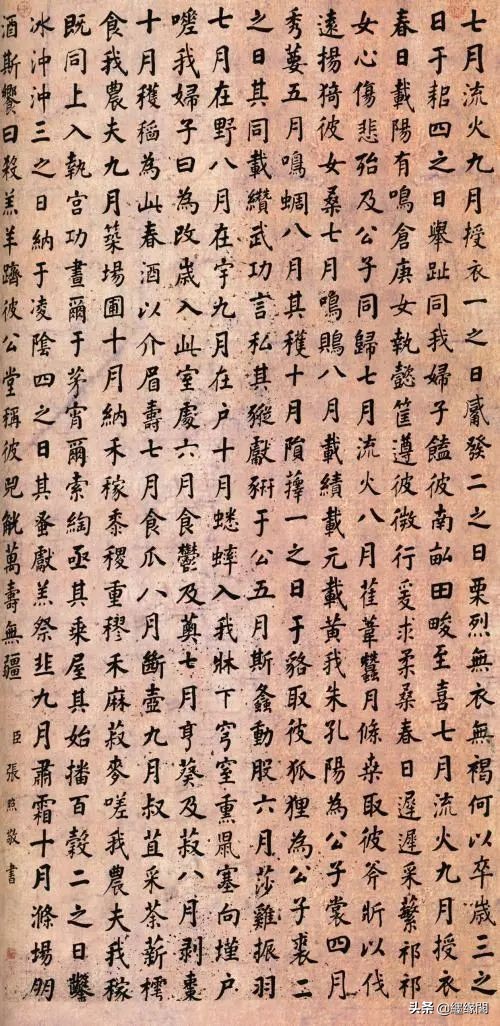 七月流火九月授衣一之日觱發二之日栗烈無衣無褐何以卒歲三之
日于耜四之日舉趾同我婦子饁彼南畝田畯至喜七月流火九月授衣
春日載陽有鳴倉庚女執懿筐遵彼微行爰求柔桑春日遲遲采蘩祁祁
女心傷悲殆及公子同歸七月流火八月萑葦蠶月條桑取彼斧斨以伐
遠揚猗彼女桑七月鳴鵙八月載績載元載黃我朱孔陽為公子裳四月
秀葽五月鳴蜩八月其穫十月隕蘀一之日于貉取彼狐狸為公子裘二
之日其同載纘武功言私其豵獻豜于公五月斯螽動股六月莎雞振羽
七月在野八月在宇九月在戶十月蟋蟀入我牀下穹室熏鼠塞向墐戶
嗟我婦子曰為改歲入此室處六月食鬱及薁七月亨葵及菽八月剝棗
十月穫稻為此春酒以介眉壽七月食瓜八月斷壺九月叔苴采荼薪樗
食我農夫九月築場圃十月納禾稼黍稷重穋禾麻菽麥嗟我農夫我稼
既同上入執宮功晝爾于茅宵爾索綯亟其乘屋其始播百穀二之日鑿
冰沖沖三之日納于凌陰四之日其蚤獻羔祭韭九月肅霜十月滌場朋
酒斯饗曰殺羔羊躋彼公堂稱彼兕觥萬壽無疆
臣張照敬書
头条